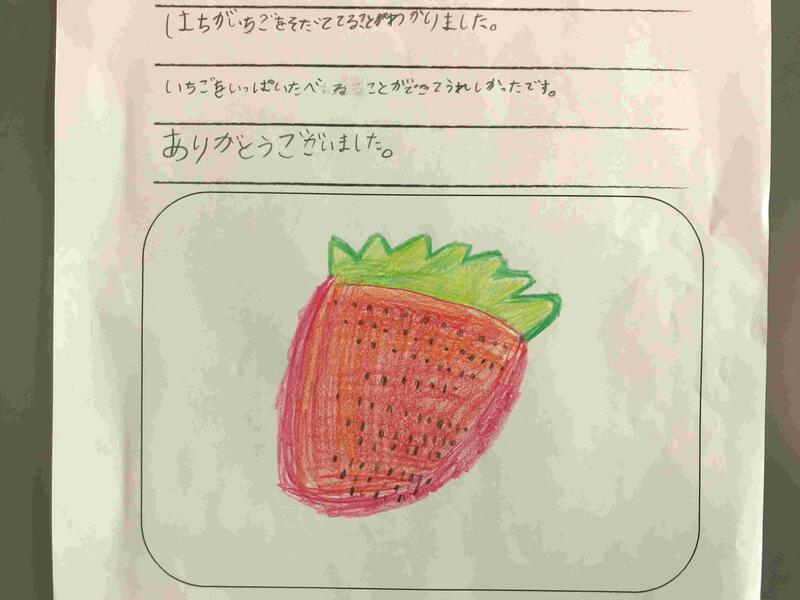 はちがいちごをそだててることがわかりました。
いちごをいっぱいたべることができてうれしかったです。
ありがとうございました。